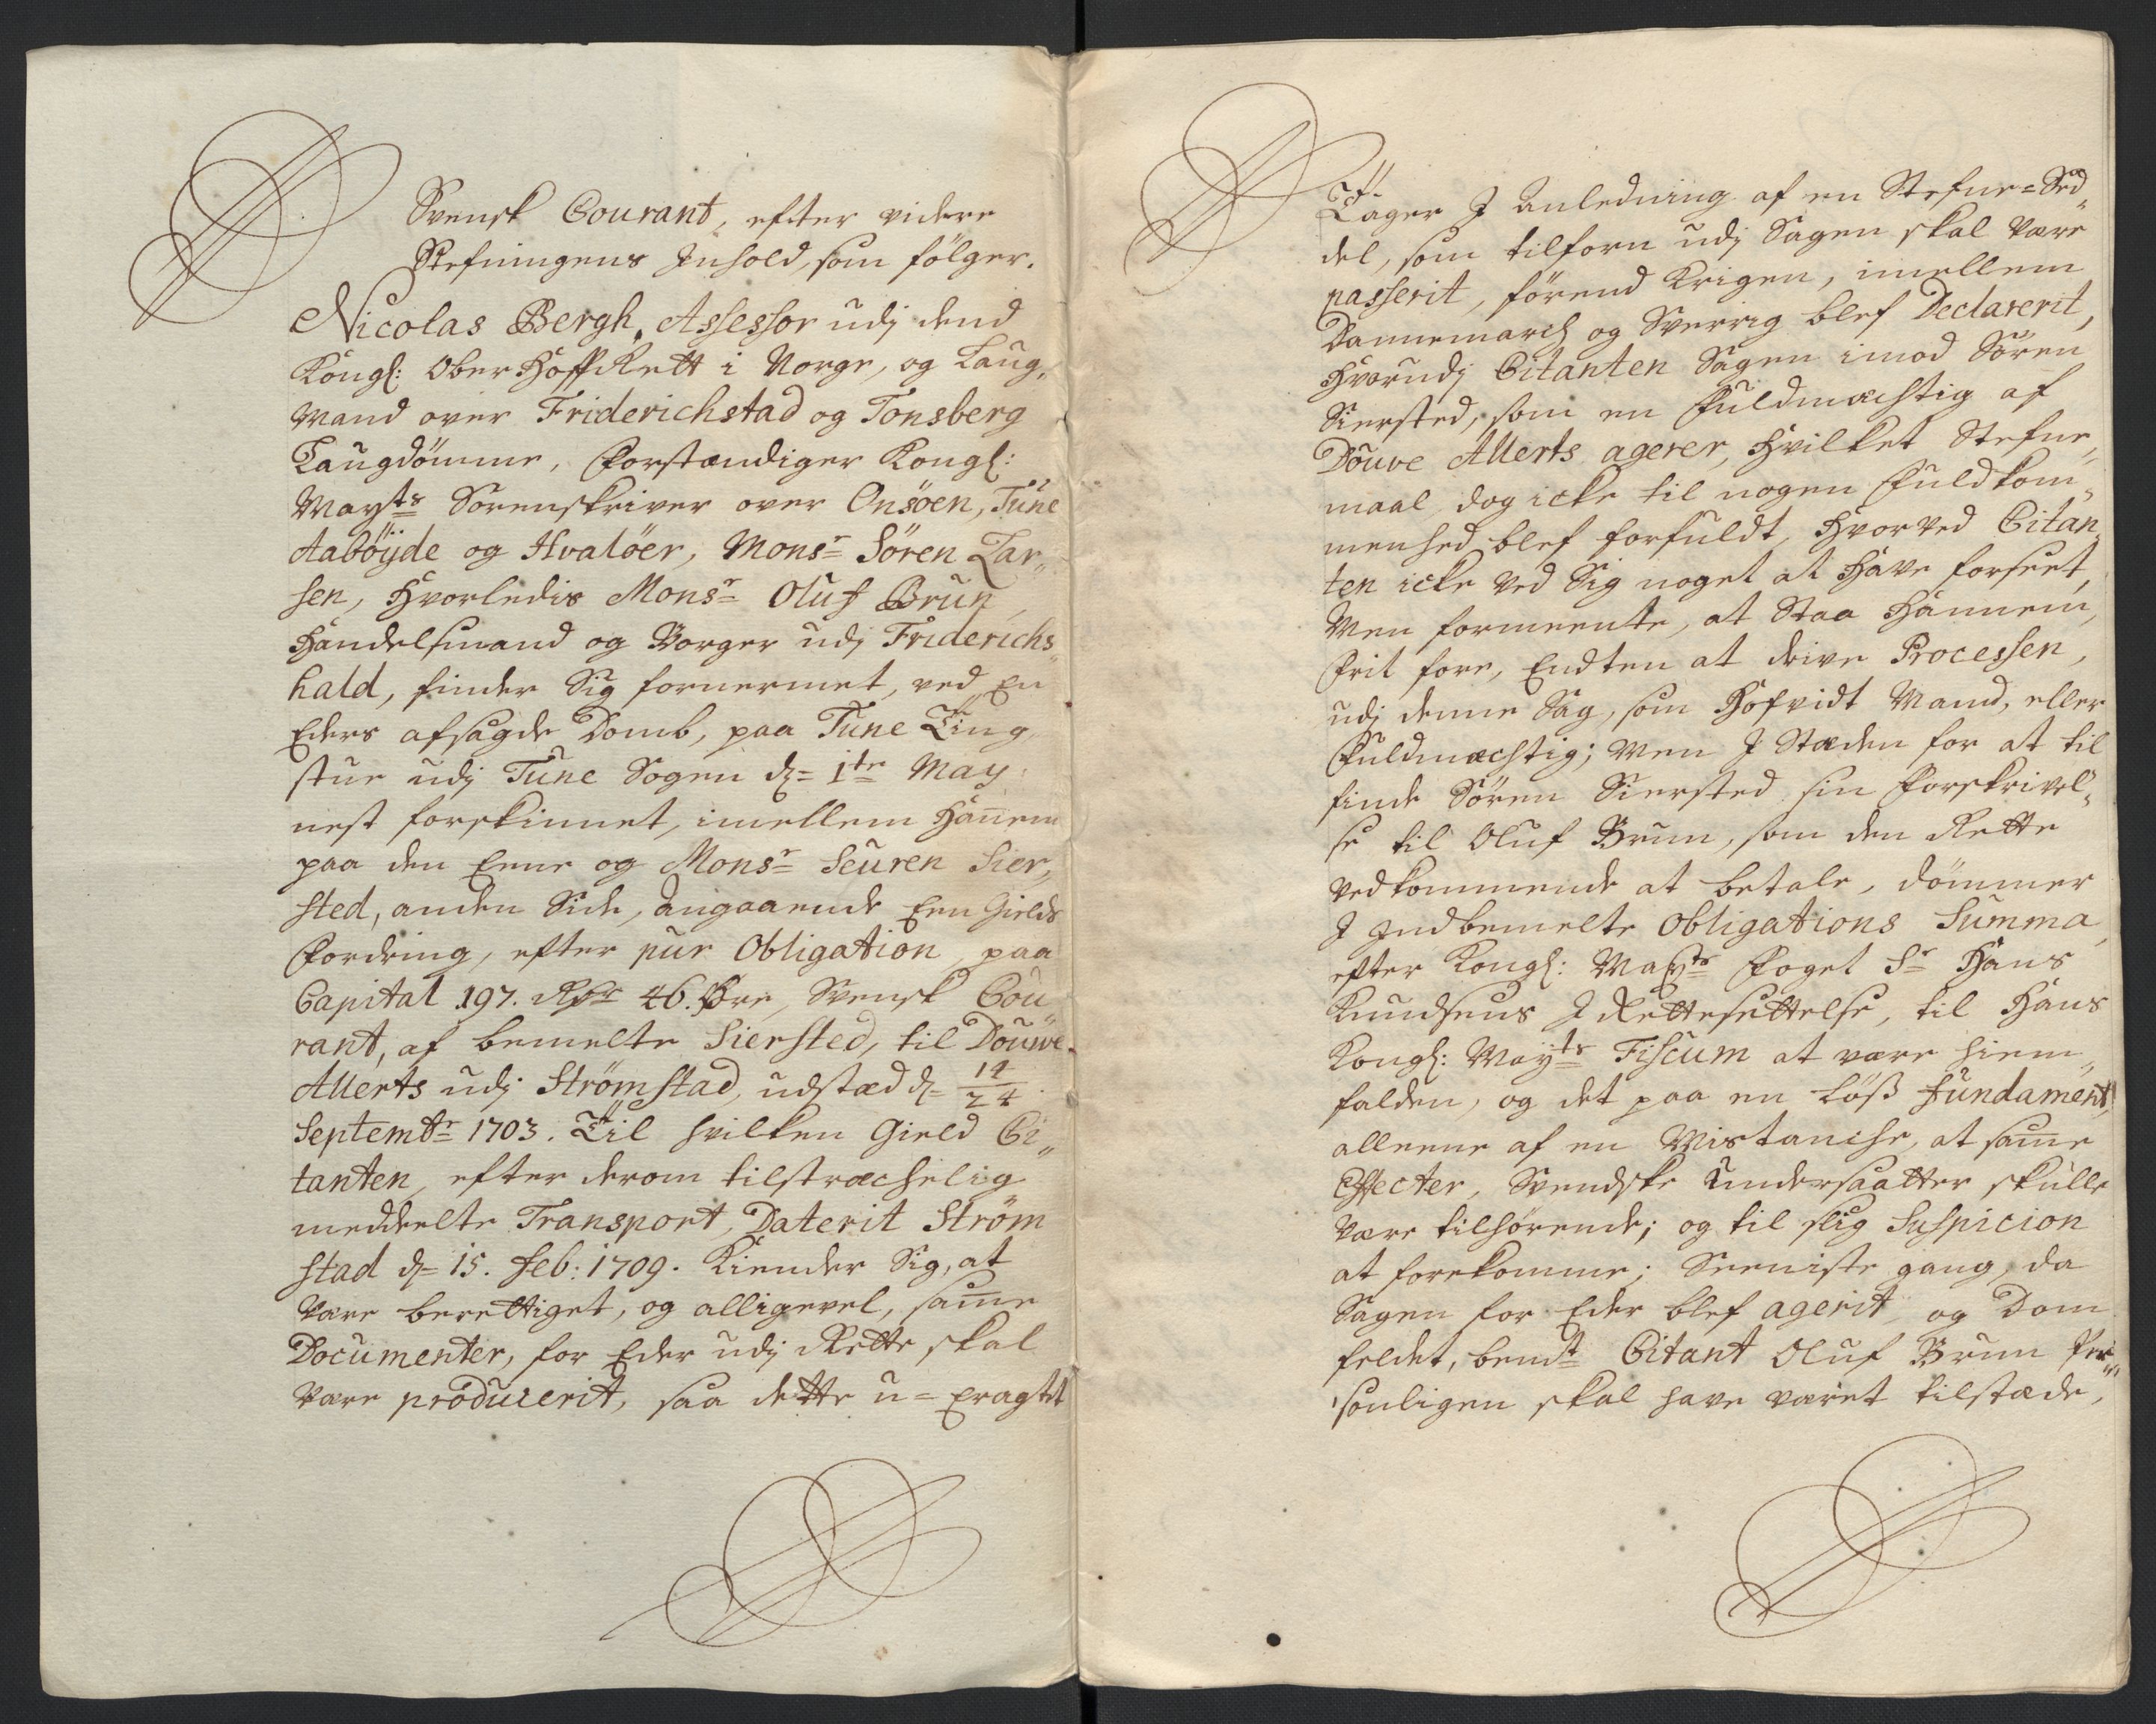 Svensk Courant, efter videre
Stefningens Inhold, som fölger.
Nicolas Bergh, Assessor udj dend
Kongl: Ober Hoff Rett i Norge, og Laug„
Mand over Friderichstad og Tonsberg
Laugdömme, Forstændiger Kongl:
Mayts Sorenskriver over Onsöen, Tune
Aaböyde og Hvalöer, Monsr Sören Lar„
sen, Hvorledis Monsr Oluf Brun,
Handelsmand og Borger udj Friderichs„
hald, finder Sig fornermet, ved En
Eders afsagde Domb, paa Tune Ting„
stue udj Tune Sogen d= 1te May
nest forskinnet, imellem Hannem
paa den Eene og Monsr Seuren Sier„
sted, anden Side, angaaende Een Gields
Fordring, efter pur Obligation, paa
Capital 197. Rdr 46. Öre, Svensk Cou„
rant, af bemelte Siersted, til Douwe
Allerts udj Strömstad, udstæd d= 14/24
Septembr 1703. Til hvilken Gield Ci„
tanten, efter derom tilstræchelig
meddeelte Transport, Daterit Ström
stad d= 15. Feb: 1709. Kiender Sig, at
Være berettiget, og alligevel, same
Documenter, for Eder udj Rette skal
Være producerit, saa dette u=eragtet
Tager I Anledning af en Stefne=Sed„
del, som tilforn udj Sagen skal Være
passerit, förend Krigen, imellem
Dannemarch og Sverrig blef Declarerit,
Hvorudj Citanten Sagen imod Sören
Siersted, som en Fuldmæchtig af
Douve Allerts agerer, Hvilket Stefne„
maal, dog icke til nogen Fuldkom„
menhed blef forfuldt, Hvorved Citan„
ten icke ved Sig noget at Have forseet,
Men formeente, at Staa Hannem,
Frit fore, Endten at drive Processen,
udj denne Sag, som Hofvidt Mand, eller
Fuldmæchtig; Men I Stæden for at til
finde Sören Siersted sin Forskrivel„
se til Oluf Brun, som den Rette
Vedkommende at betale, dömmer
I Indbemelte Obligations Summa,
efter Kongl: Mayts Foget Sr Hans
Knudsens I Rettesettelse, til Hans
Kongl: Mayts Fiscum at være hiem„
falden, og det paa en Löss Fundament,
alleene af en Mistanche, at same
Effecter, Svendske Undersaatter skulle
Være tilhörende; og til slig Suspicion
at forekomme; Seeniste gang, da
Sagen for Eder blef agerit, og Dom
feldet, bemdt Citant Oluf Brun Per„
sonligen skal have været tilstæde,